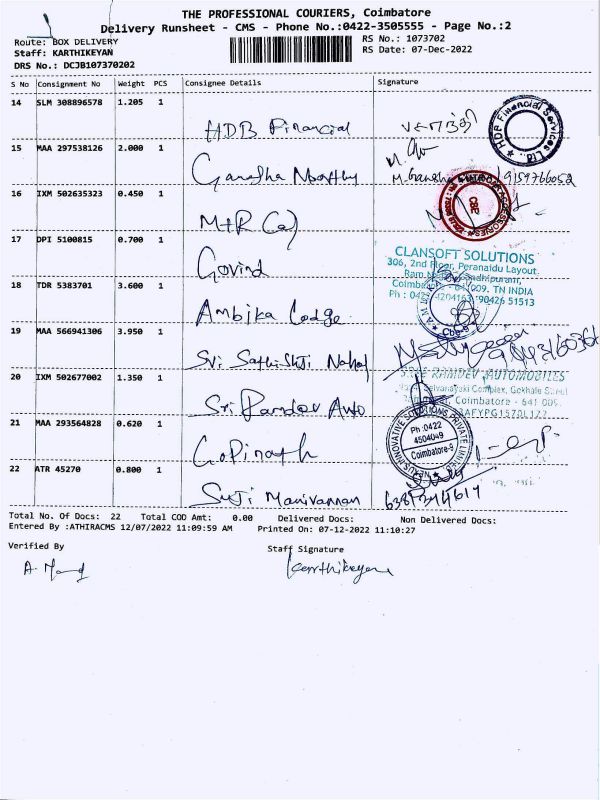 THE PROFESSIONAL COURIERS, Coimbatore
Delivery Runsheet - CMS - Phone No.:0422-3505555 - Page No.:2
Route: BOX DELIVERY
RS No.: 1073702
Staff: KARTHIKEYAN
RS Date: 07-Dec-2022
DRS No.: DCJB107370202
S No Consignment No Weight PCS Consignee Details Signature
14 SLM 308896578 1.205 1
HDB Financial
HDB Financial Services Ltd.
15 MAA 297538126 2.000 1
Ganesha Moorthy
9159766052
16 IXM 502635323 0.450 1
M+R
17 DPI 5100815 0.700 1
Govind
CLANSOFT SOLUTIONS
306, 2nd Floor, Peranaidu Layout,
18 TDR 5383701 3.600 1
Ambika Lodge
TN INDIA
90426 51513
19 MAA 566941306 3.950 1
Sri
20 IXM 502677002 1.350 1
Sri Ramdev Auto
SREE RAMDEV AUTOMOBILES
Complex, Gokhale Street
Coimbatore - 641 009.
21 MAA 293564828 0.620 1
Gopinath
NEXUS INNOVATIVE SOLUTIONS PRIVATE LIMITED
Ph :0422
4504049
Coimbatore-9
22 ATR 45270 0.800 1
Suji Manivannan
Total No. Of Docs: 22 Total COD Amt: 0.00 Delivered Docs: Non Delivered Docs:
Entered By :ATHIRACMS 12/07/2022 11:09:59 AM Printed On: 07-12-2022 11:10:27
Verified By
Staff Signature
Karthikeyan